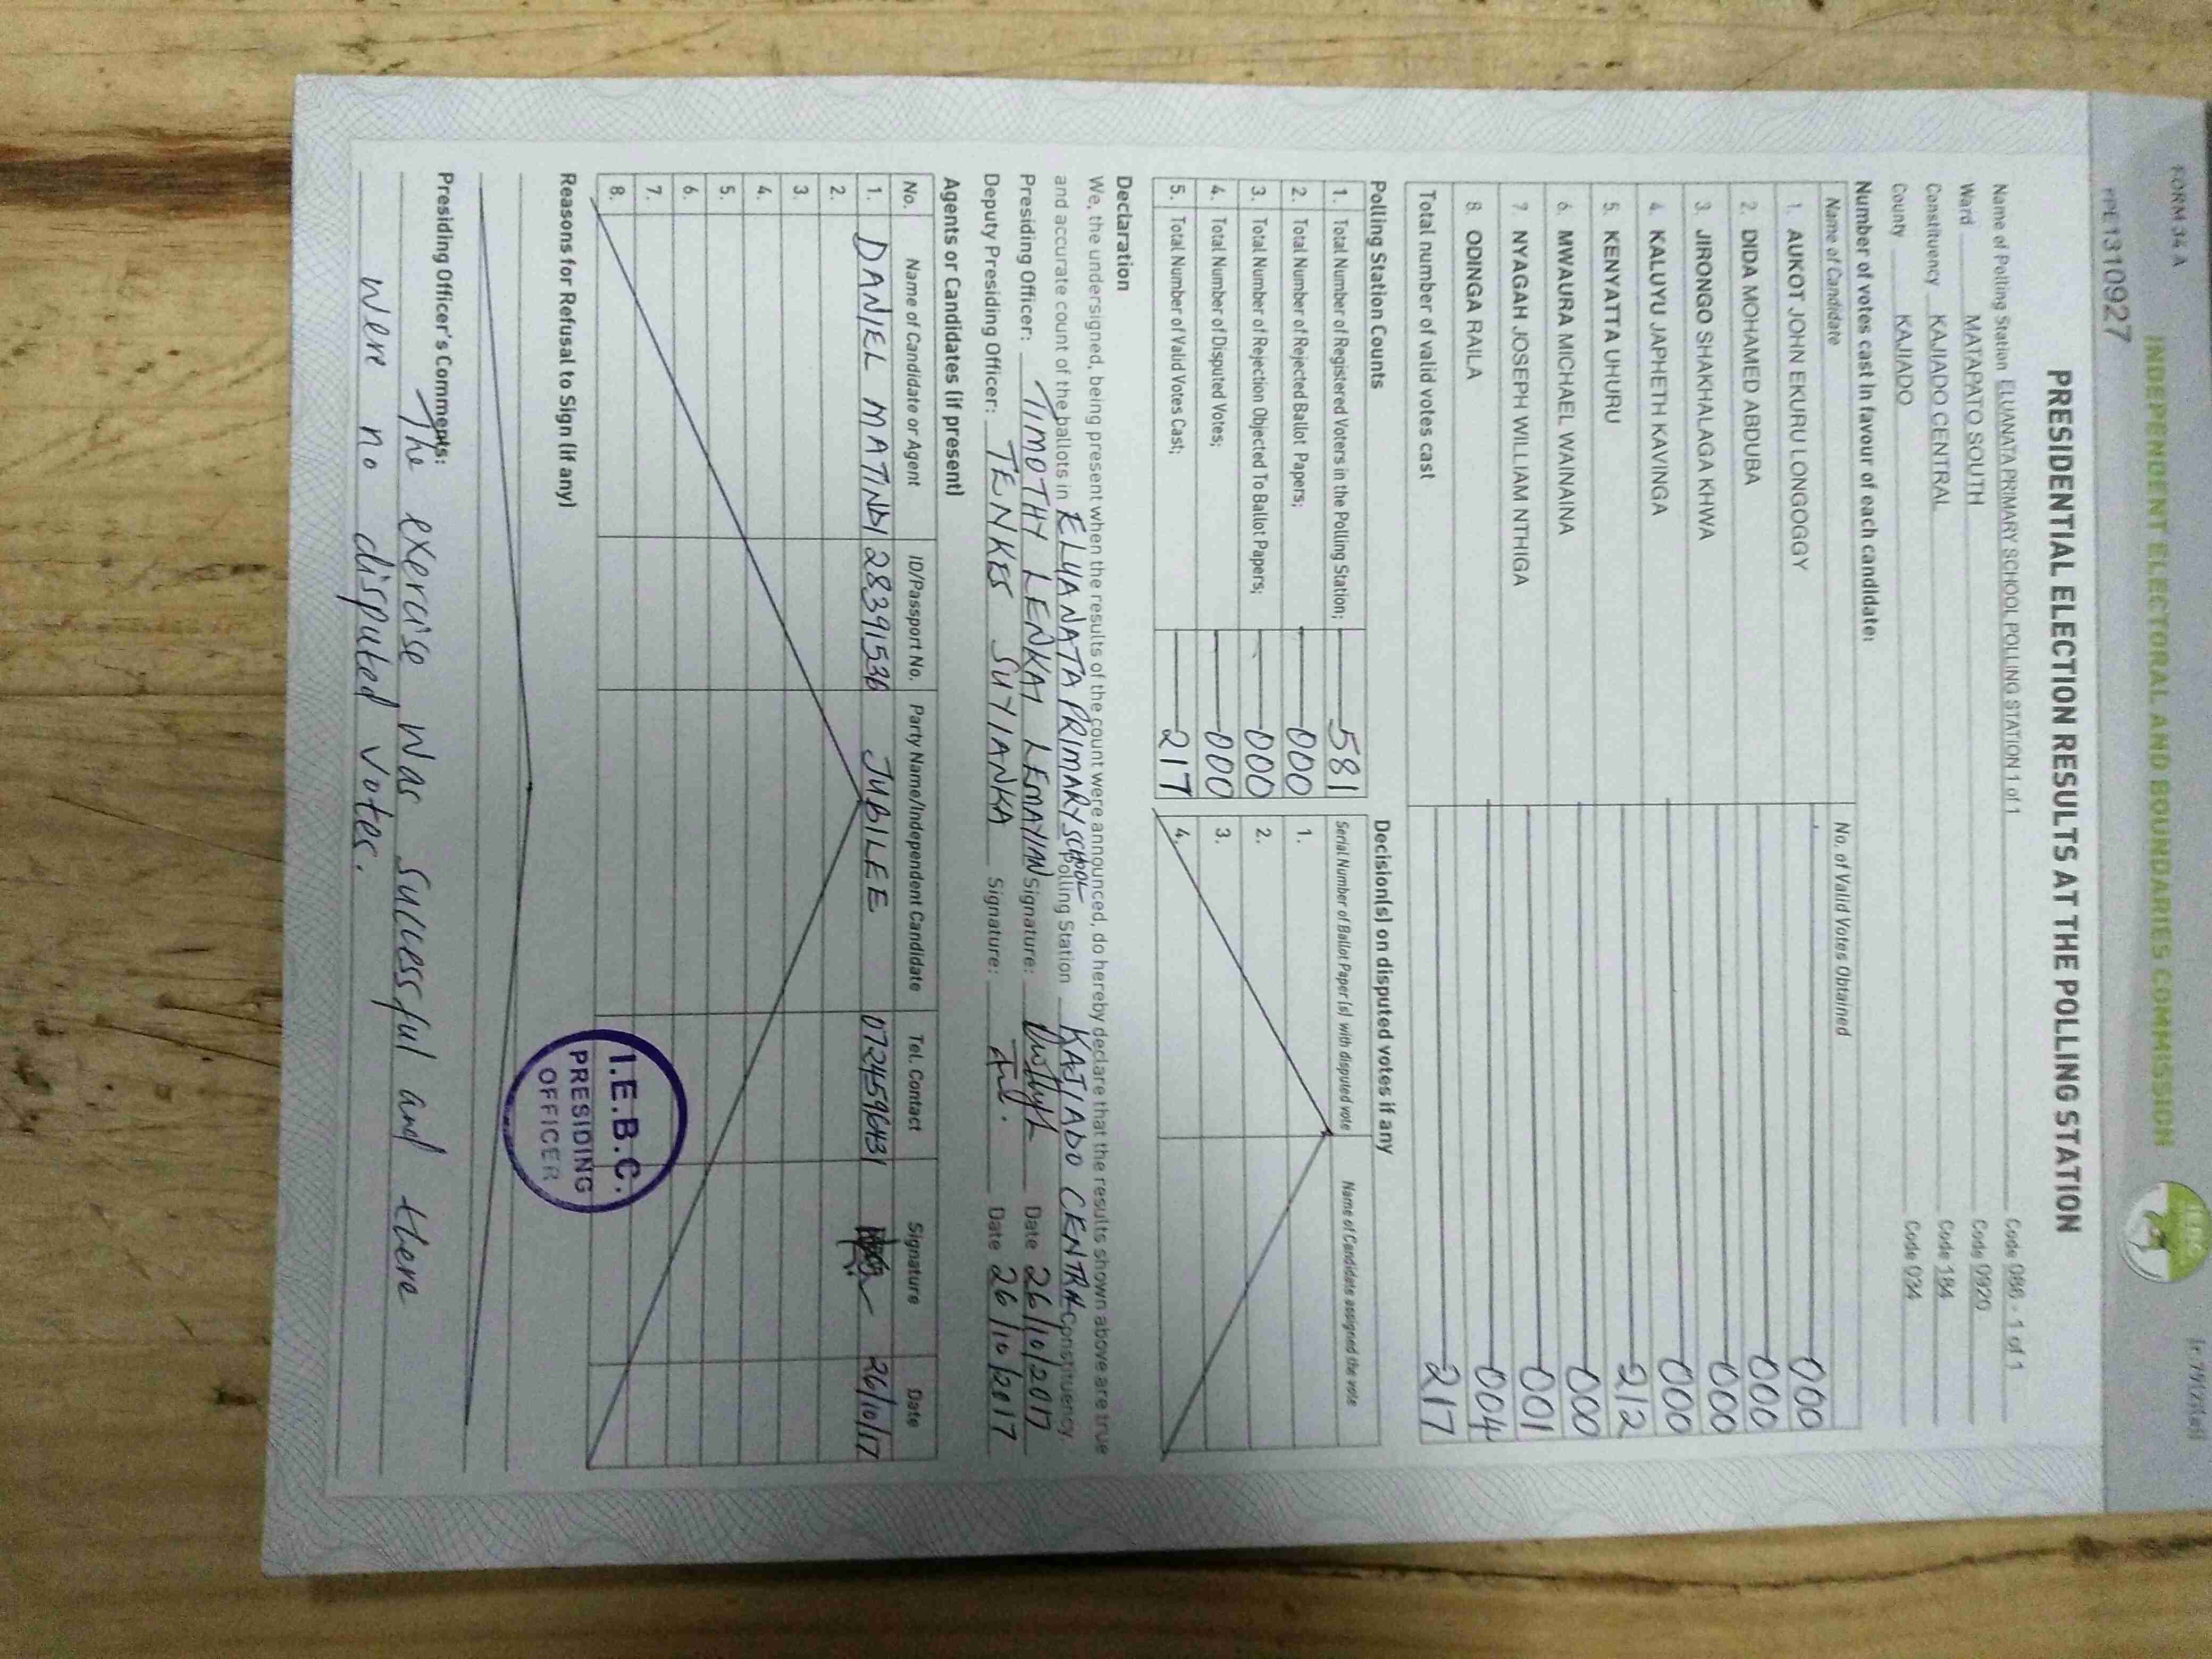 FORM 34 A
INDEPENDENT ELECTORAL AND BOUNDARIES COMMISSION
IEBC
PPE1310927
PRESIDENTIAL ELECTION RESULTS AT THE POLLING STATION
Name of Polling Station ELUANATA PRIMARY SCHOOL POLLING STATION 1 of 1 Code 088 - 1 of 1
Ward MATAPATO SOUTH Code 0920
Constituency KAJIADO CENTRAL Code 184
County KAJIADO Code 034
Number of votes cast in favour of each candidate:
Name of Candidate No. of Valid Votes Obtained
1. AUKOT JOHN EKURU LONGOGGY 000
2. DIDA MOHAMED ABDUBA 000
3. JIRONGO SHAKHALAGA KHWA 000
4. KALUYU JAPHETH KAVINGA 000
5. KENYATTA UHURU 212
6. MWAURA MICHAEL WAINAINA 000
7. NYAGAH JOSEPH WILLIAM NTHIGA 001
8. ODINGA RAILA 004
Total number of valid votes cast 217
Polling Station Counts Decision(s) on disputed votes if any
1. Total Number of Registered Voters in the Polling Station; 581
2. Total Number of Rejected Ballot Papers; 000
3. Total Number of Rejection Objected To Ballot Papers; 000
4. Total Number of Disputed Votes; 000
5. Total Number of Valid Votes Cast; 217
Serial Number of Ballot Paper (s) with disputed vote Name of Candidate assigned the vote
1.
2.
3.
4.
Declaration
We, the undersigned, being present when the results of the count were announced, do hereby declare that the results shown above are true
and accurate count of the ballots in ELUANATA PRIMARY SCHOOL Polling Station KAJIADO CENTRAL Constituency.
Presiding Officer: TIMOTHY LENKAI LEMAYIAN Signature: Date 26/10/2017
Deputy Presiding Officer: TENKES SUYIANKA Signature: Date 26/10/2017
Agents or Candidates (if present)
No. Name of Candidate or Agent ID/Passport No. Party Name/Independent Candidate Tel. Contact Signature Date
1. DANIEL MATINDI 28391536 JUBILEE 0724596431 26/10/17
2.
3.
4.
5.
6.
7.
8.
I.E.B.C.
PRESIDING
OFFICER
Reasons for Refusal to Sign (if any)
Presiding Officer's Comments:
The exercise was successful and there
were no disputed votes.